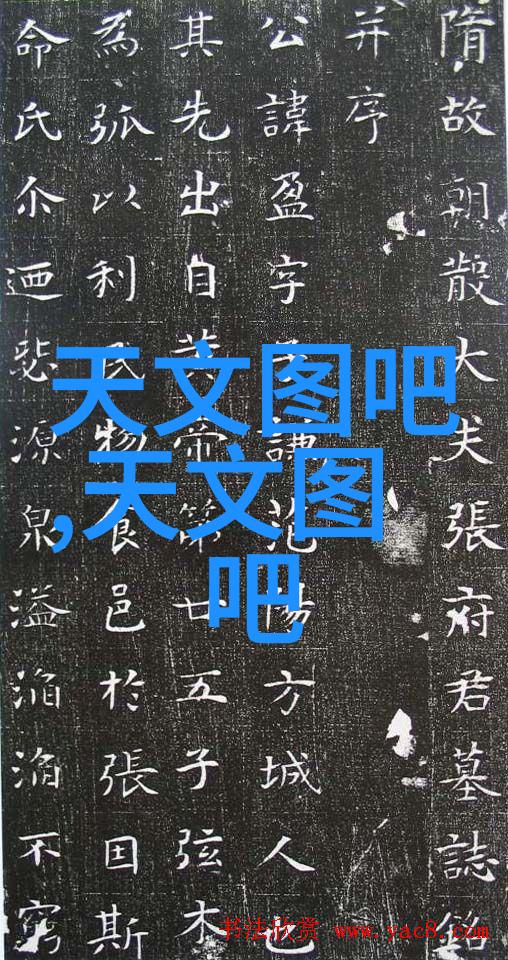 隋故朝散大夫張府君墓誌銘
并序
公諱盈字謙范陽方城人也
其先出自黃帝第廿五子弦木
為弧以利民物食邑於張因斯
命氏尒迺悲源泉溢滔滔不窮
天文图吧
,天文图
吧
书法欣赏 www.yac8.com